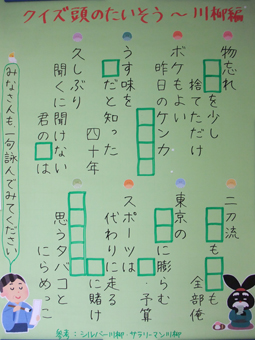 クイズ頭のたいそう～川柳編
物忘れ
□□を少し
捨てただけ
ボケもよい
昨日のケンカ
□□□□□
うす味を
□だと知った
四十年
久しぶり
聞くに聞けない
君の□は
二刀流
□も□も
全部俺
東京の
□□に膨らむ
□・予算
スポーツは
代わりに走る
□に賭け
□□□□□と
思うタバコと
にらめっこ
みなさんも、一句詠んでみてください
参考：シルバー川柳・サラリーマン川柳